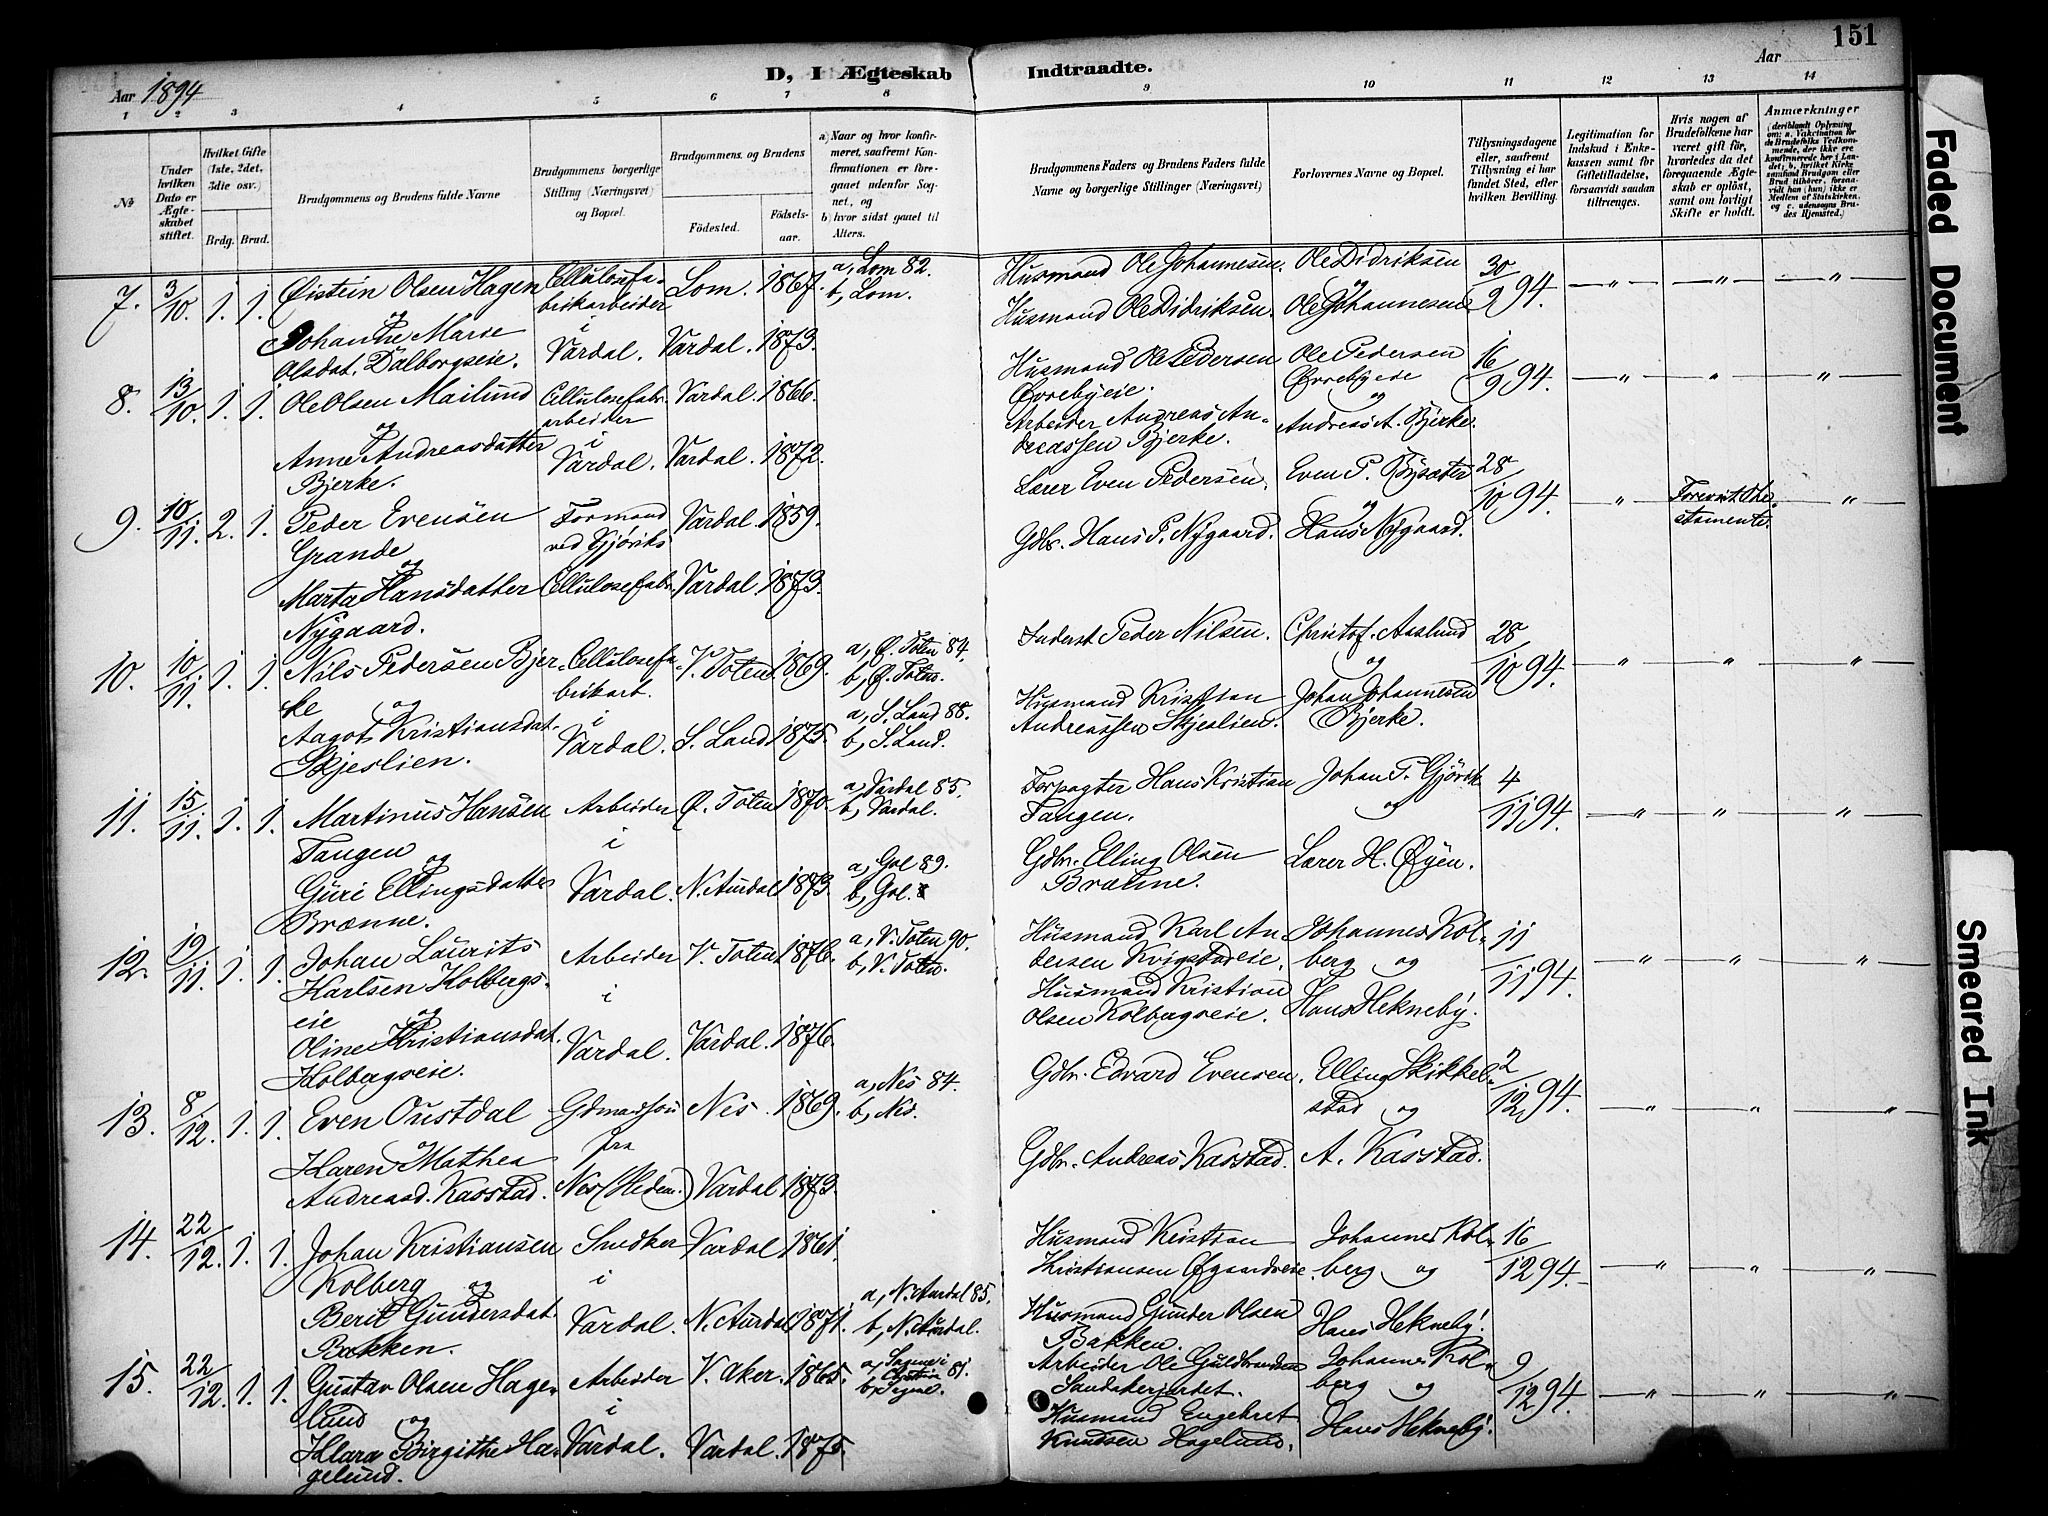 151
D, I Ægteskab Indtraadte.
Aar 1894
Aar
1 2 3 4 5 6 7 8 9 10 11 12 13 14
No
Under hvilken Dato er Ægteskabet stiftet.
Hvilket Gifte (1ste, 2det, 3die osv.)
Brdg. Brud.
Brudgommens og Brudens fulde Navne
Brudgommens borgerlige Stilling (Næringsvei) og Bopæl.
Brudgommens og Brudens
Fødested.
Fødselsaar.
a) Naar og hvor konfirmeret, saafremt Konfirmationen er foregaaet udenfor Sognet, og
b) hvor sidst gaaet til Alters.
Brudgommens Faders og Brudens Faders fulde Navne og borgerlige Stillinger (Næringsvei)
Forlovernes Navne og Bopæl.
Tillysningsdagene eller, saafremt Tillysning ei har fundet Sted, efter hvilken Bevilling.
Legitimation for Indskud i Enkekassen samt for Giftetilladelse, forsaavidt saadan tiltrænges.
Hvis nogen af Brudefolkene har været gift før, hvorledes da det foregaaende Ægteskab er opløst, samt om lovligt Skifte er holdt.
Anmærkninger (deriblandt Oplysning om: a. Vakcination for de Brudefolks Vedkommende, der ikke ere konfirmerede her i Landet; b. hvilket Kirkesamfund Brudgom eller Brud tilhører, forsaavidt han (hun) ikke er Medlem af Statskirken, og c. udensogns Brudes Hjemsted.)
7. 3/10. 1. 1. Øistein Olsen Hagen Cellulosefabrikarbeider Lom. 1867. a, Lom 82. b, Lom. Husmand Ole Johannesen. Ole Didriksen 30/9 94. — " — " "
og Johanne Marie Olsdat. Dalborgseie. i Vardal. Vardal. 1873. Husmand Ole Didriksen. og Ole Johannesen
8. 13/10. 1. 1. Ole Olsen Mailund Cellulosefabr. arbeider Vardal. 1866. Husmand Ole Pedersen Øvrebyeie. Ole Pedersen Øvrebyeie 16/9 94. — " — " "
og Anne Andreasdatter Bjerke. i Vardal. Vardal. 1872. Arbeider Andreas Andreassen Bjerke. og Andreas A. Bjerke.
9. 10/11. 2. 1. Peder Evensen Grande Formand ved Gjøviks Vardal. 1859. Lærer Even Pedersen. Even P. Bysæter 28/10 94. "
og Marta Hansdatter Nygaard. Cellulosefabr. Vardal. 1873. Gdbr. Hans P. Nygaard. og Hans Nygaard.
10. 10/11. 1. 1. Nils Pedersen Bjerke Cellulosefabrikarb. V. Toten 1869. a, Ø. Toten 84. b, Ø. Toten. Inderst Peder Nilsen. Christof. Aaslund 28/10 94. " " "
og Aagot Kristiansdat. Skjeslien. i Vardal. S. Land 1875. a, S. Land 88. b, S. Land. Husmand Kristian Andreassen Skjeslien. og Johan Johannesen Bjerke.
11. 15/11. 1. 1. Martinus Hansen Tangen Arbeider Ø. Toten 1870. a, Vardal 85. b, Vardal. Forpagter Hans Kristian Tangen. Johan P. Gjøvik 4/11 94. " " "
og Guri Ellingsdatter Brænne. i Vardal. N. Aurdal 1873. a, Gol 89. b, Gol. Gdbr. Elling Olsen Brænne. og Lærer H. Øyen.
12. 19/11. 1. 1. Johan Laurits Karlsen Kolbergseie Arbeider V. Toten 1876. a, V. Toten 90. b, V. Toten. Husmand Karl Andersen Kvigstadeie. Johannes Kolberg 11/11 94. " " "
og Oline Kristiansdat. Kolbergseie. i Vardal. Vardal. 1876. Husmand Kristian Olsen Kolbergseie. og Hans Hekneby.
13. 8/12. 1. 1. Even Oustdal Gdmandsøn Nes. 1869. a, Nes 84. b, Nes. Gdbr. Edvard Evensen. Elling Skikkelstad 2/12 94. " " "
Karen Mathea Andreasd. Kasstad. fra Nes (Hedem.) Vardal 1873. Gdbr. Andreas Kasstad. og A. Kasstad.
14. 22/12. 1. 1. Johan Kristiansen Kolberg Snedker Vardal 1861. Husmand Kristian Kristiansen Øfgaardseie. Johannes Kolberg 16/12 94. " " "
og Berit Gundersdat. Bakken. i Vardal. N. Aurdal 1871. a, N. Aurdal 85. b, N. Aurdal. Husmand Gunder Olsen Bakken. og Hans Hekneby.
15. 22/12. 1. 1. Gustav Olsen Hagelund Arbeider V. Aker. 1865. Arbeider Ole Guldbrandsen Sandakerjordet. Johannes Kolberg 9/12 94. " " "
og Klara Birgithe Hagelund. i Vardal. Vardal. 1875. Husmand Engebret Knudsen Hagelund. og Hans Hekneby.
Faded Document
Smeared Ink